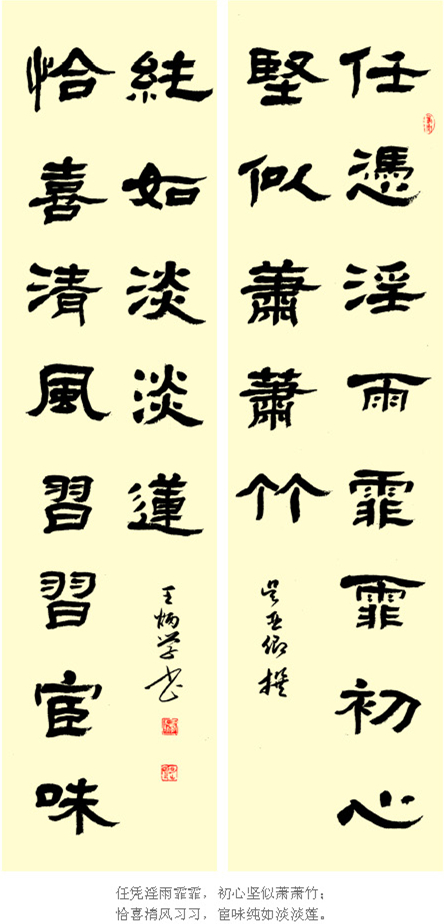 任憑淫雨霏霏初心
堅似蕭蕭竹
吴亚卿撰
恰喜清風習習宦味
純如淡淡蓮
王炳学书
任凭淫雨霏霏，初心坚似萧萧竹；
恰喜清风习习，宦味纯如淡淡莲。